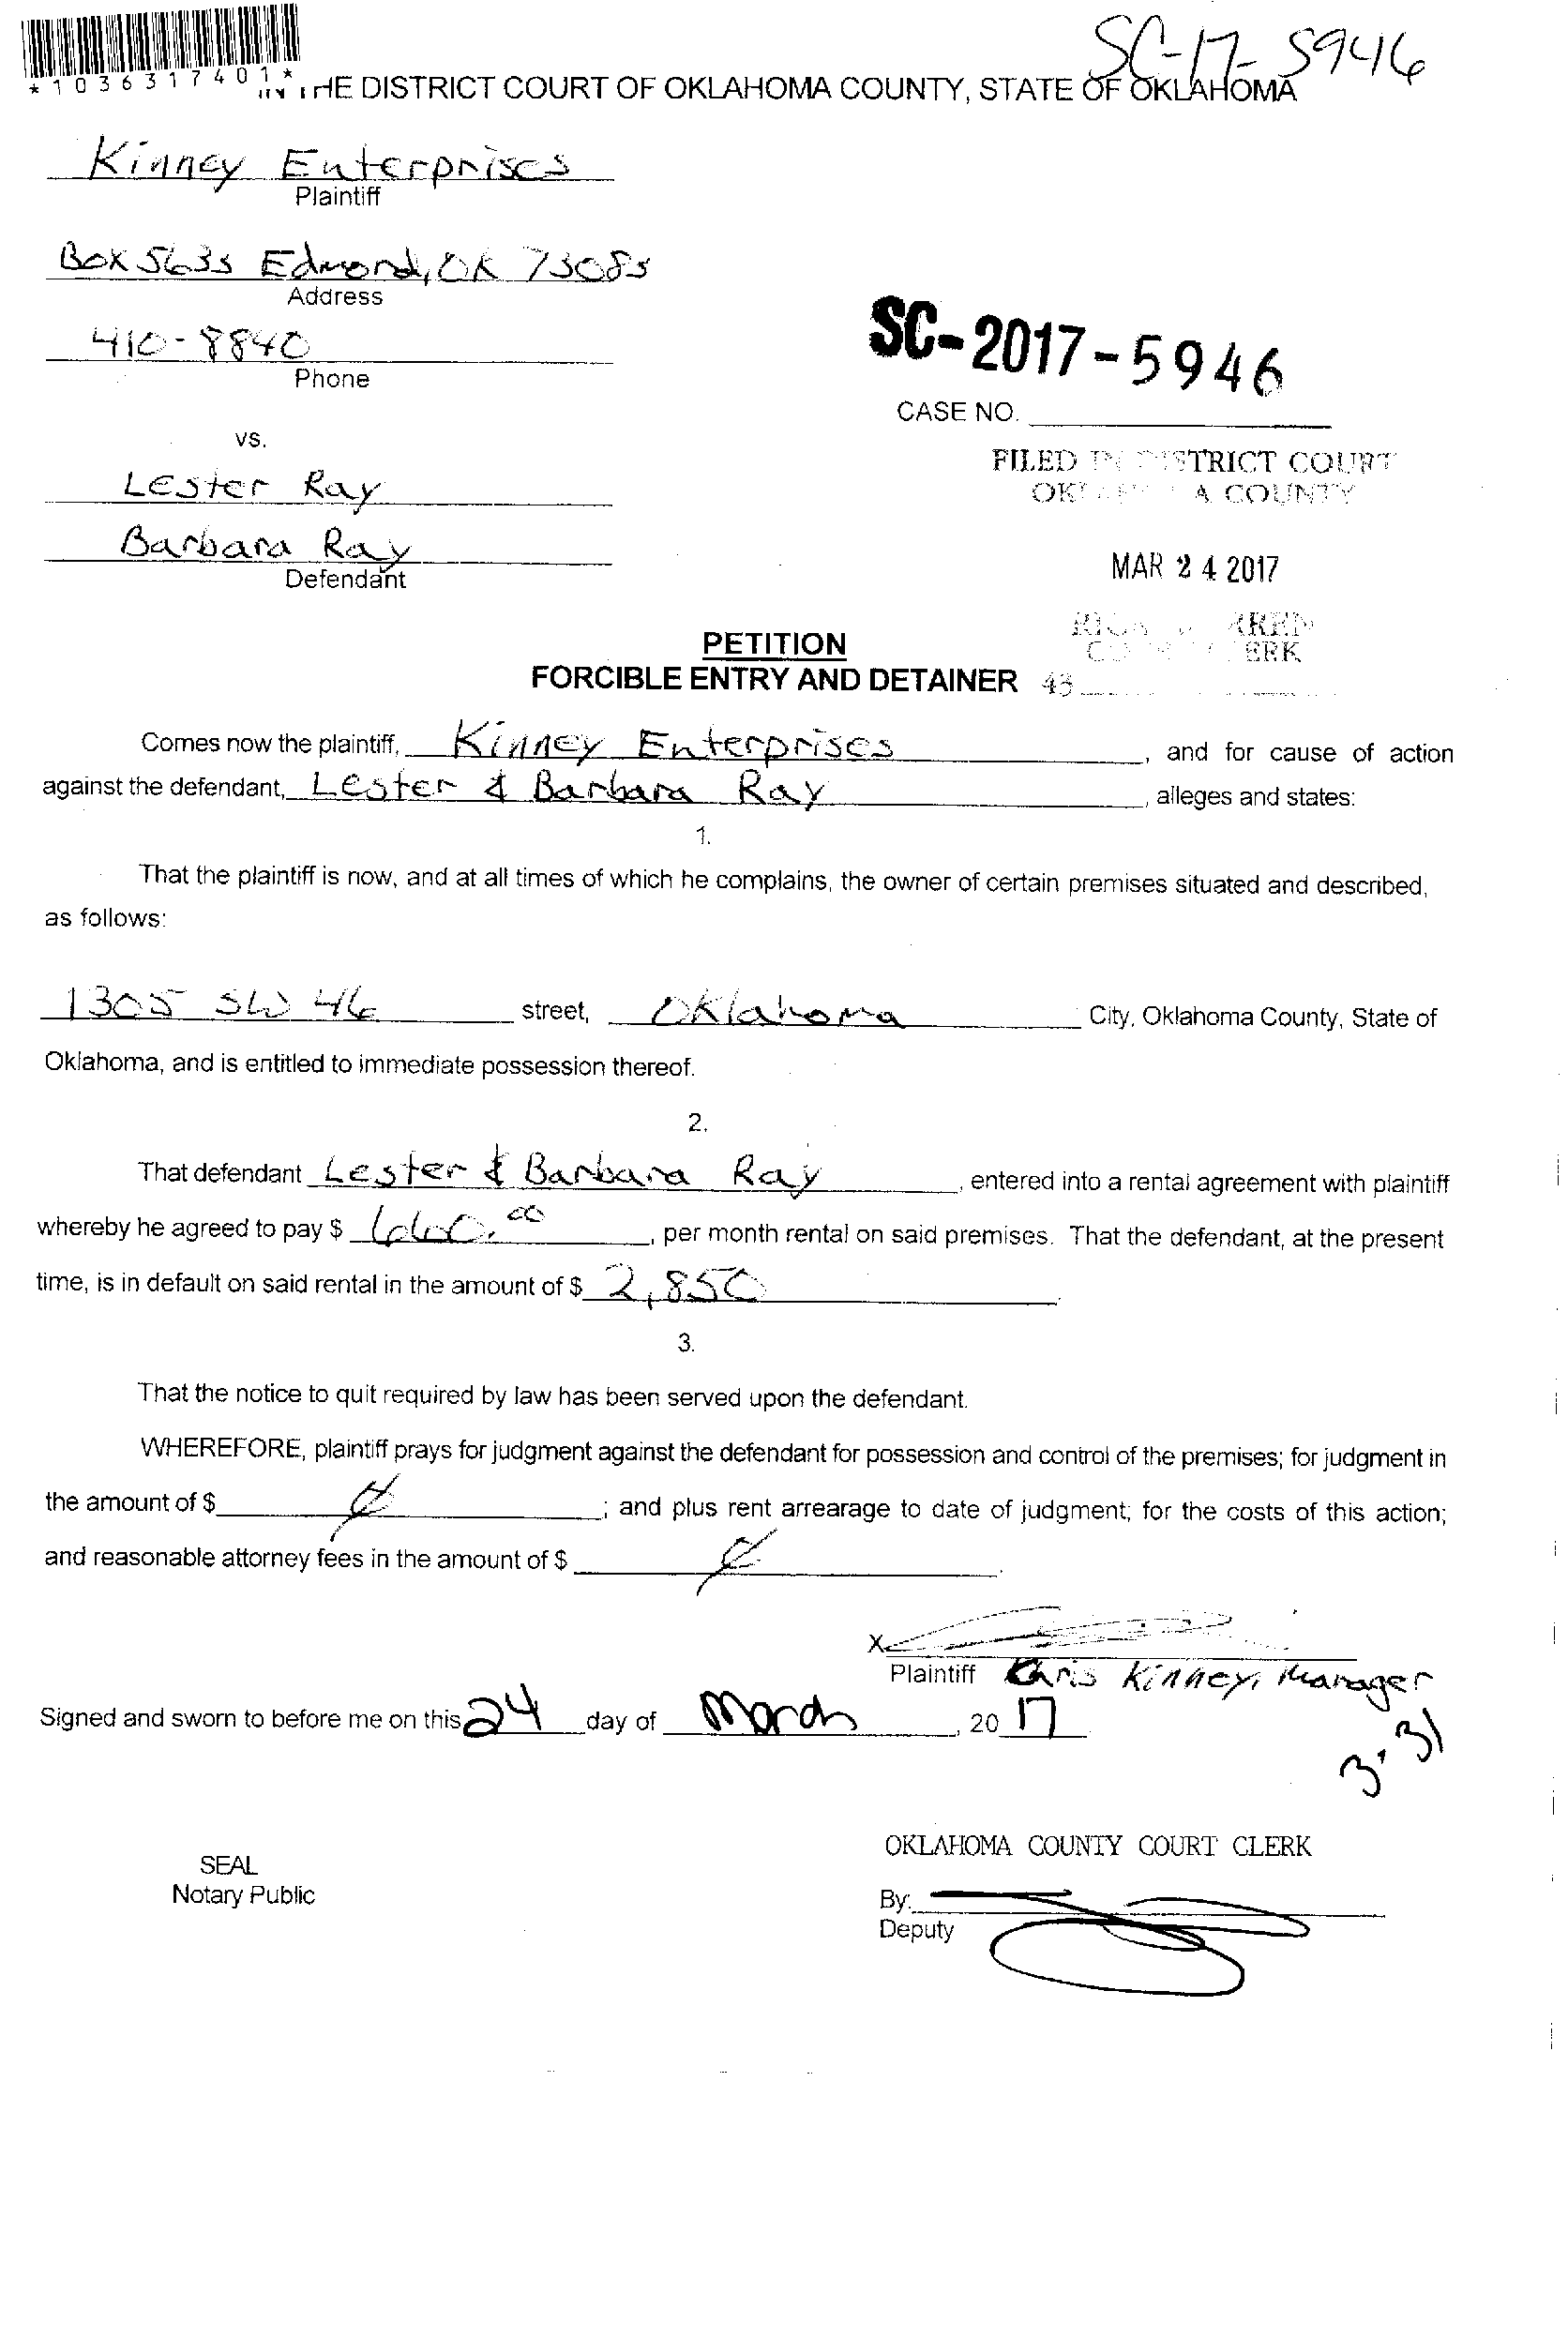 SC-17-5946
*1036317401*
IN THE DISTRICT COURT OF OKLAHOMA COUNTY, STATE OF OKLAHOMA
Kinney Enterprises
Plaintiff
Box 5635 Edmond, OK 73083
Address
410-8840
Phone
SC-2017-5946
CASE NO.
vs.
FILED IN DISTRICT COURT
OKLAHOMA COUNTY
Lester Ray
Barbara Ray
Defendant
MAR 24 2017
RICK WARREN
COURT CLERK
PETITION
FORCIBLE ENTRY AND DETAINER 43
Comes now the plaintiff, Kinney Enterprises, and for cause of action
against the defendant, Lester & Barbara Ray, alleges and states:
1.
That the plaintiff is now, and at all times of which he complains, the owner of certain premises situated and described,
as follows:
1305 SW 46 street, Oklahoma City, Oklahoma County, State of
Oklahoma, and is entitled to immediate possession thereof.
2.
That defendant Lester & Barbara Ray, entered into a rental agreement with plaintiff
whereby he agreed to pay $ 660.00, per month rental on said premises. That the defendant, at the present
time, is in default on said rental in the amount of $ 2,850.
3.
That the notice to quit required by law has been served upon the defendant.
WHEREFORE, plaintiff prays for judgment against the defendant for possession and control of the premises; for judgment in
the amount of $ ; and plus rent arrearage to date of judgment; for the costs of this action;
and reasonable attorney fees in the amount of $ .
X
Plaintiff Chris Kinney, Manager
Signed and sworn to before me on this 24 day of March, 2017
3-31
OKLAHOMA COUNTY COURT CLERK
SEAL
Notary Public
By:
Deputy